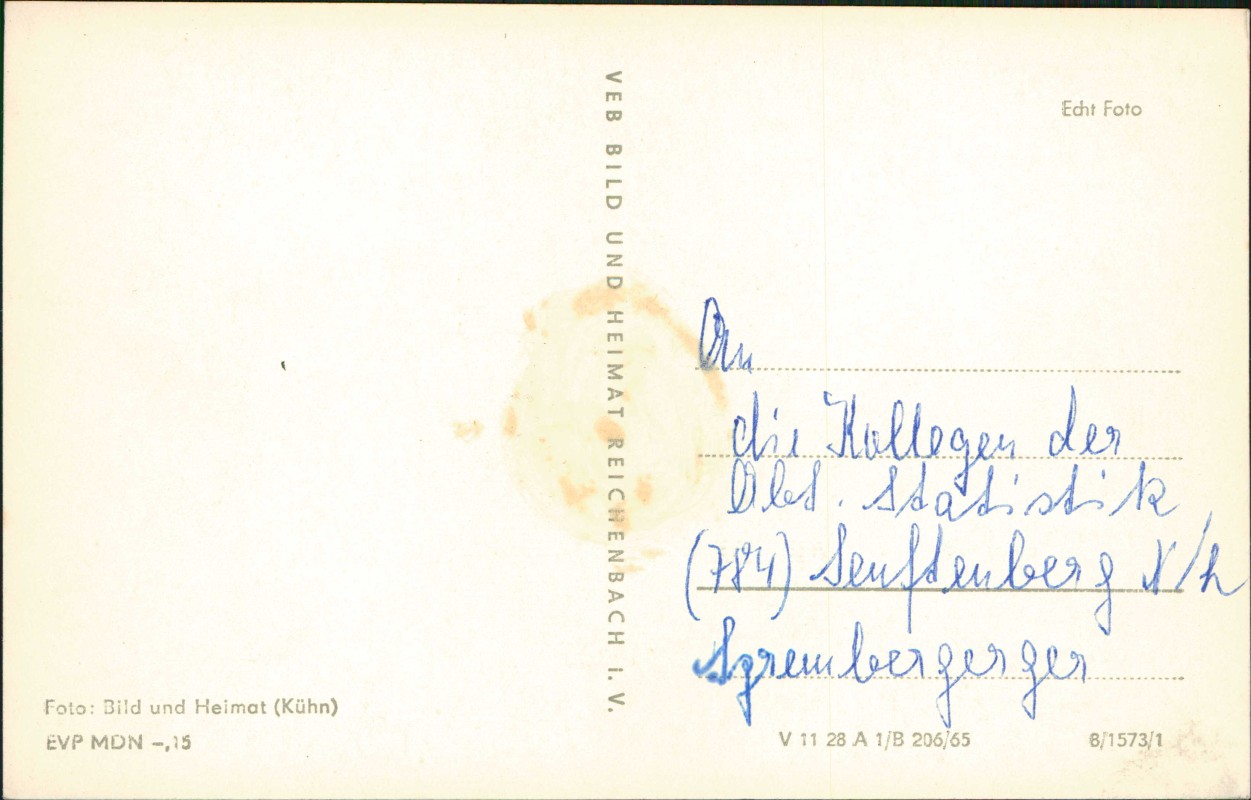 VEB BILD UND HEIMAT REICHENBACH I. V.
Echt Foto
An
die Kollegen der
Abt. Statistik
(784) Senftenberg N/L
Sprembergerger
Foto: Bild und Heimat (Kühn)
EVP MDN –,15
V 11 28 A 1/B 206/65
8/1573/1